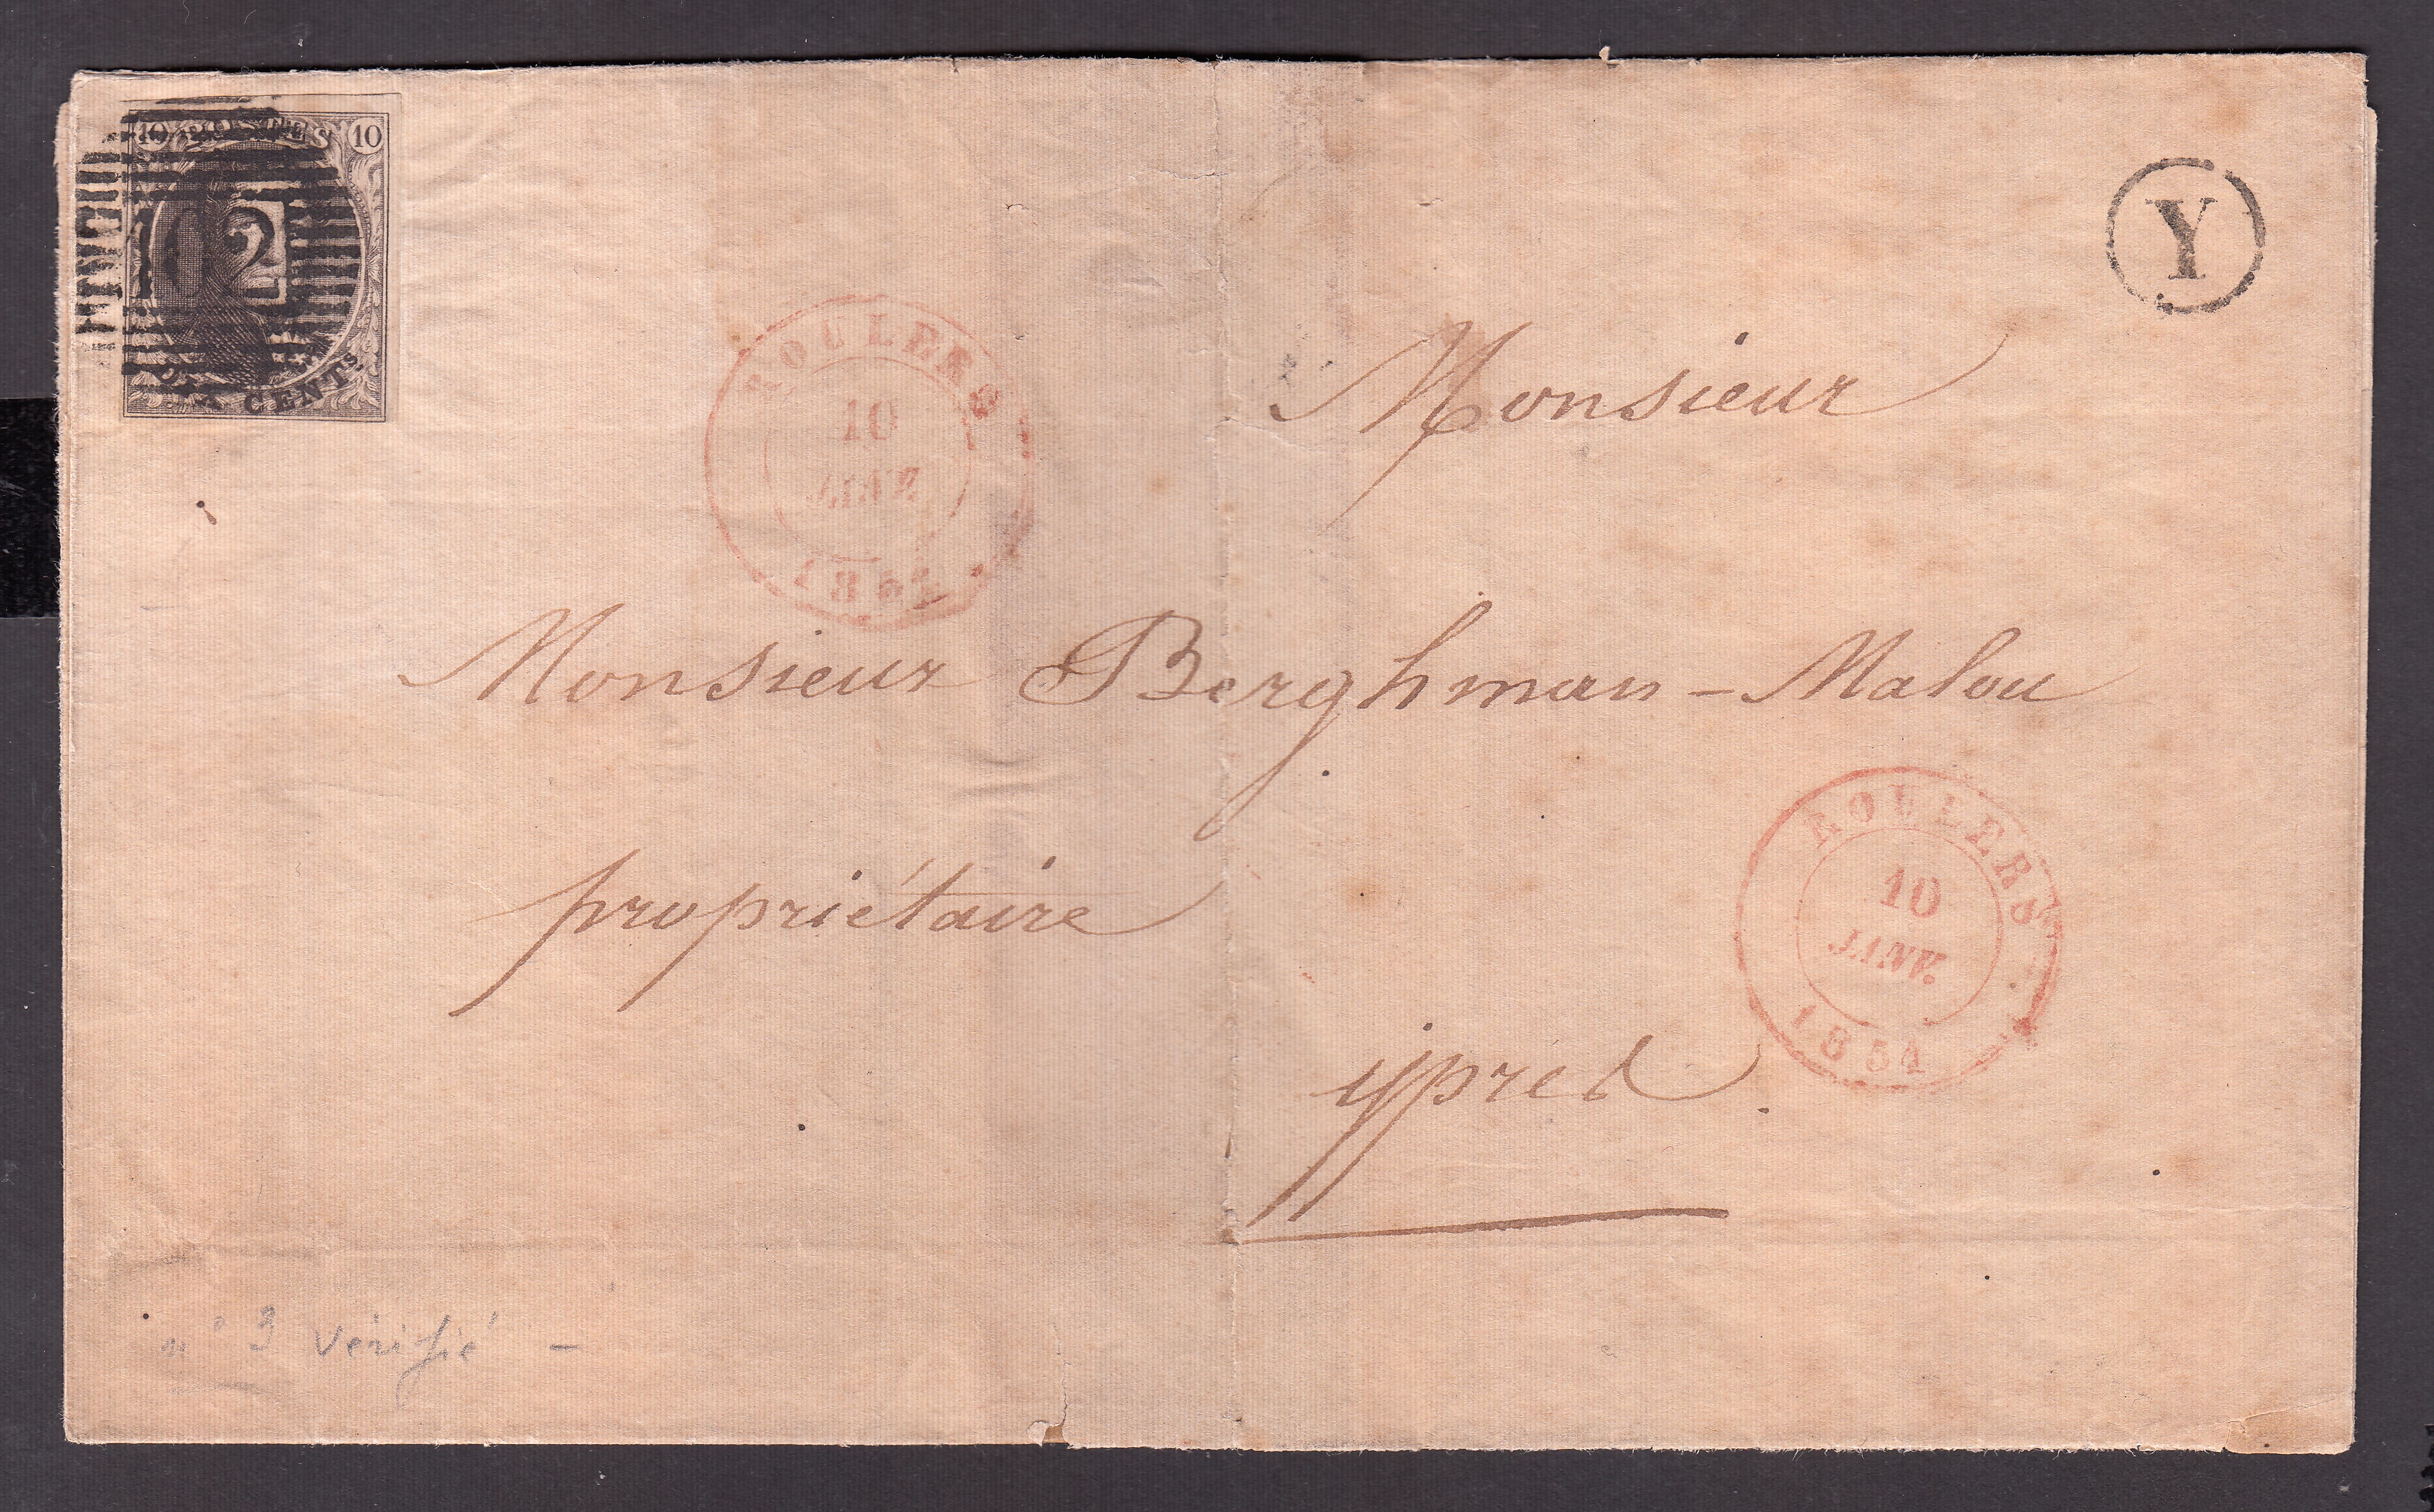 10 POSTES 10
102
DIX CENTS
Y
ROULERS
10
JANV.
1854
Monsieur
Monsieur Berghman-Malou
propriétaire
ROULERS
10
JANV.
1854
ypres.
n° 3 vérifié -